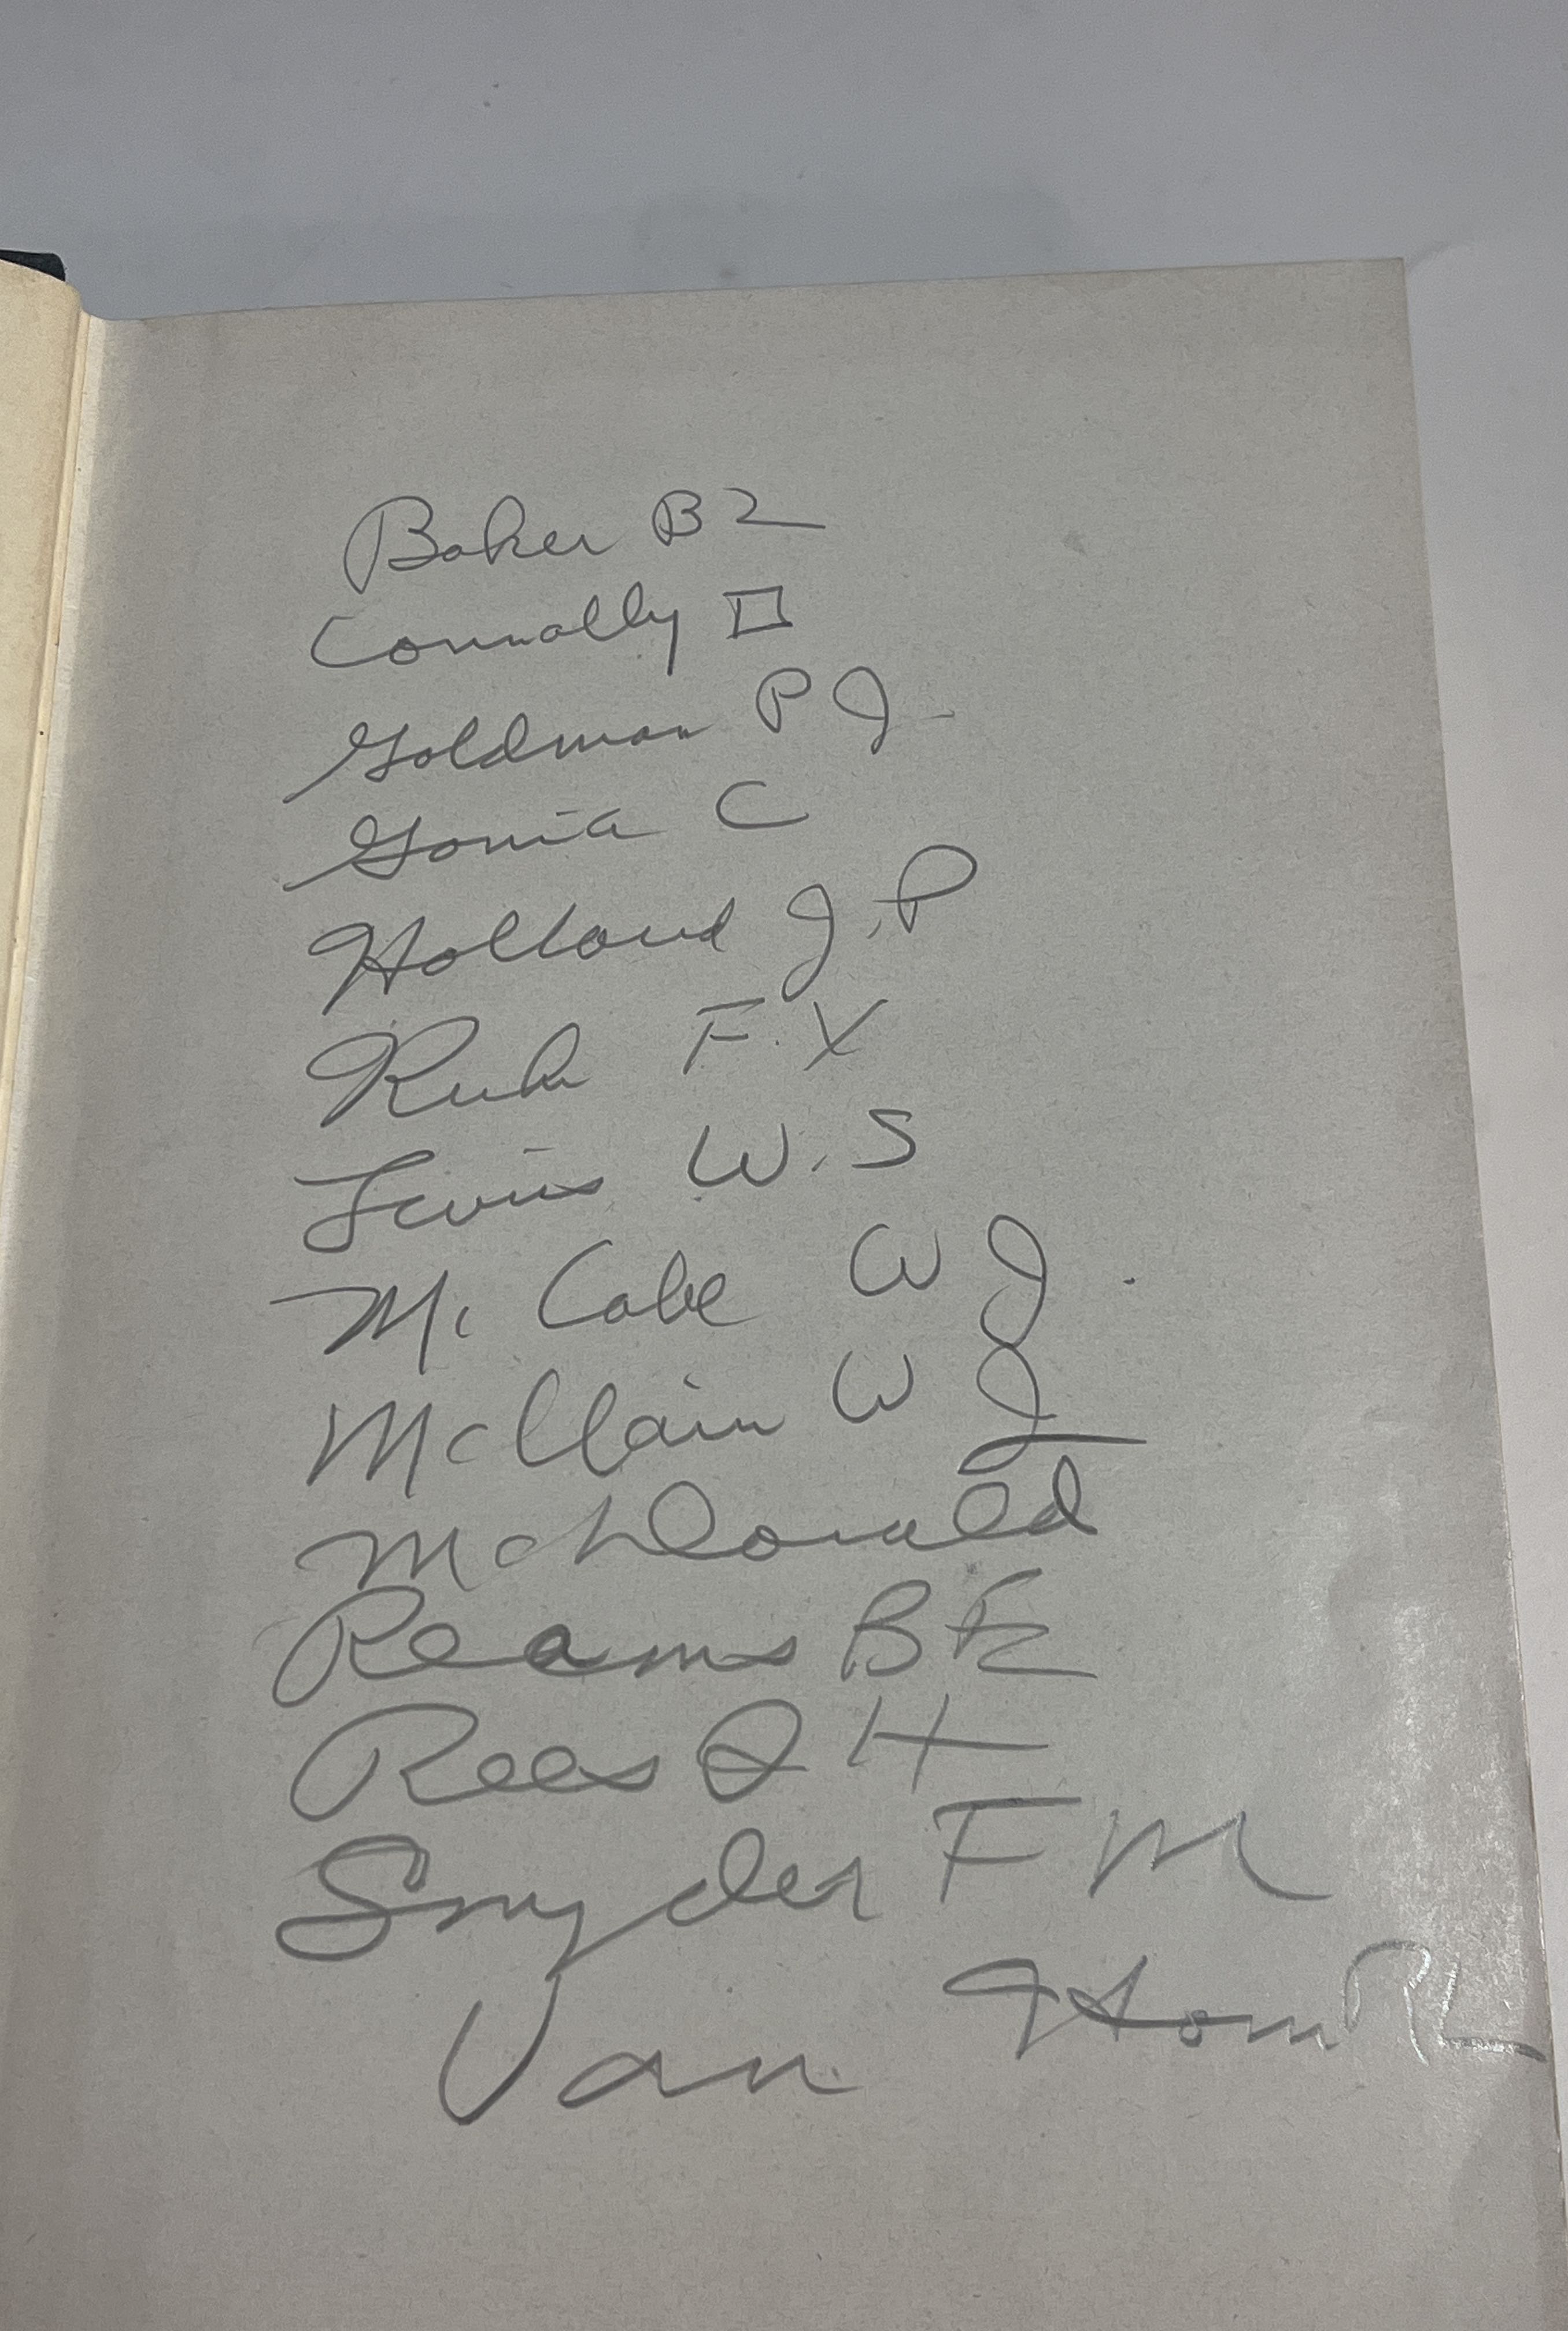 Baker B Z
Connolly
Goldman P J.
Gonia C
Holland J. P
Ruh F. X
Levin's W. S
Mc Cabe W J.
McClain W J
McDonald
Reams B F
Rees J H
Snyder F M
Van Horn RL